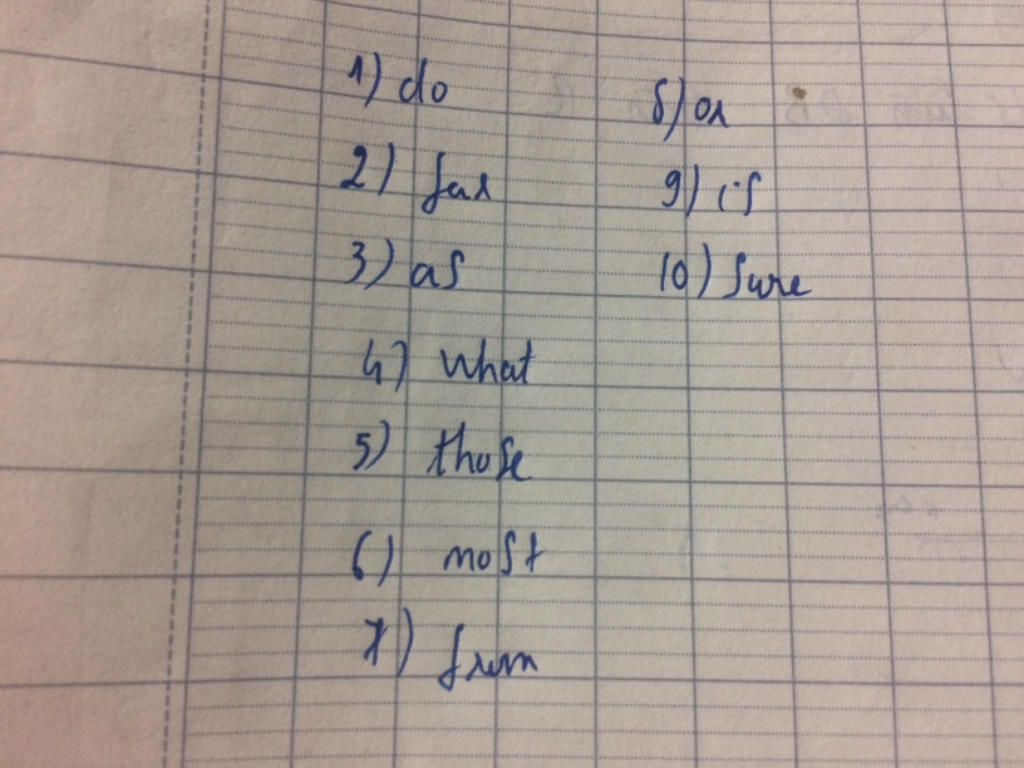 1) do
2) far
3) as
4) what
5) those
6) most
7) from
8) or
9) is
10) sure